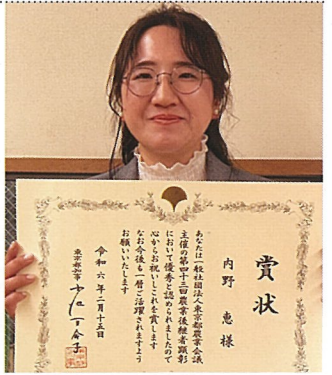 賞状
内野 恵 様
あなたは一般社団法人東京都農業会議
主催の第四十三回農業後継者顕彰
において優秀と認められましたので
心からお祝いしこれを賞します
なお今後も一層ご活躍されますよう
お願いいたします
令和六年二月十五日
東京都知事 小池百合子